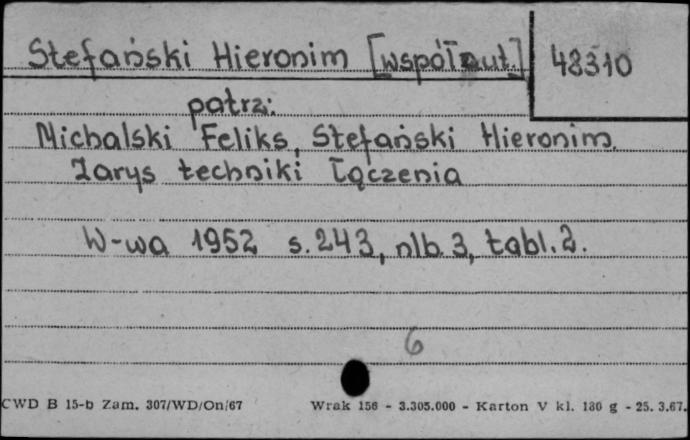 Stefański Hieronim [współaut.] 48310
patrz:
Michalski Feliks, Stefański Hieronim.
Zarys techniki łączenia
W-wa 1952 s. 243, nlb. 3, tabl. 2.
6
CWD B 15-b Zam. 307/WD/On/67 Wrak 156 - 3.305.000 - Karton V kl. 180 g - 25. 3.67.